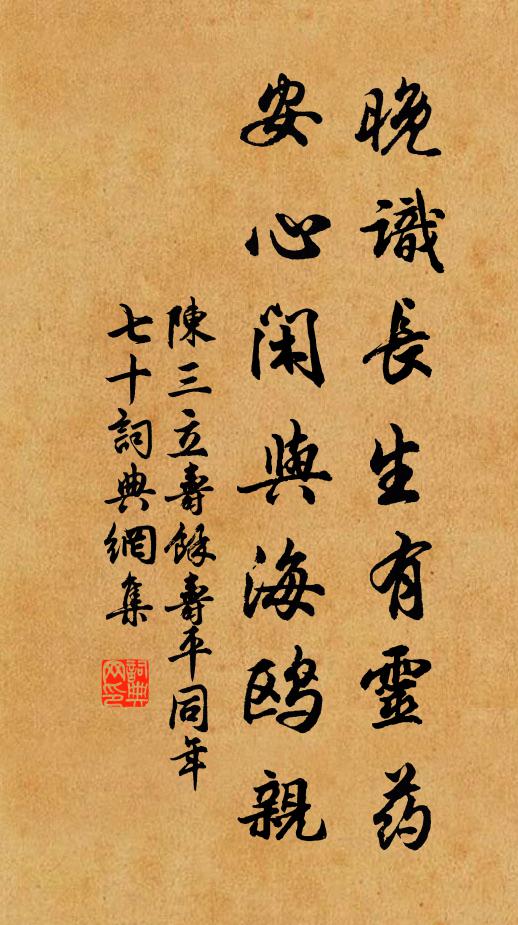 晚識長生有靈药
安心闲與海鸥親
陳三立壽餘壽平同年
七十詞典網集
詞典网印